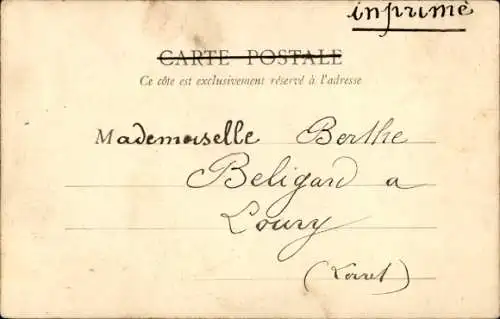 inprimé
CARTE POSTALE
Ce côte est exclusivement réservé à l'adresse
Mademoiselle Berthe
Beligard a
Loury
(Loiret)